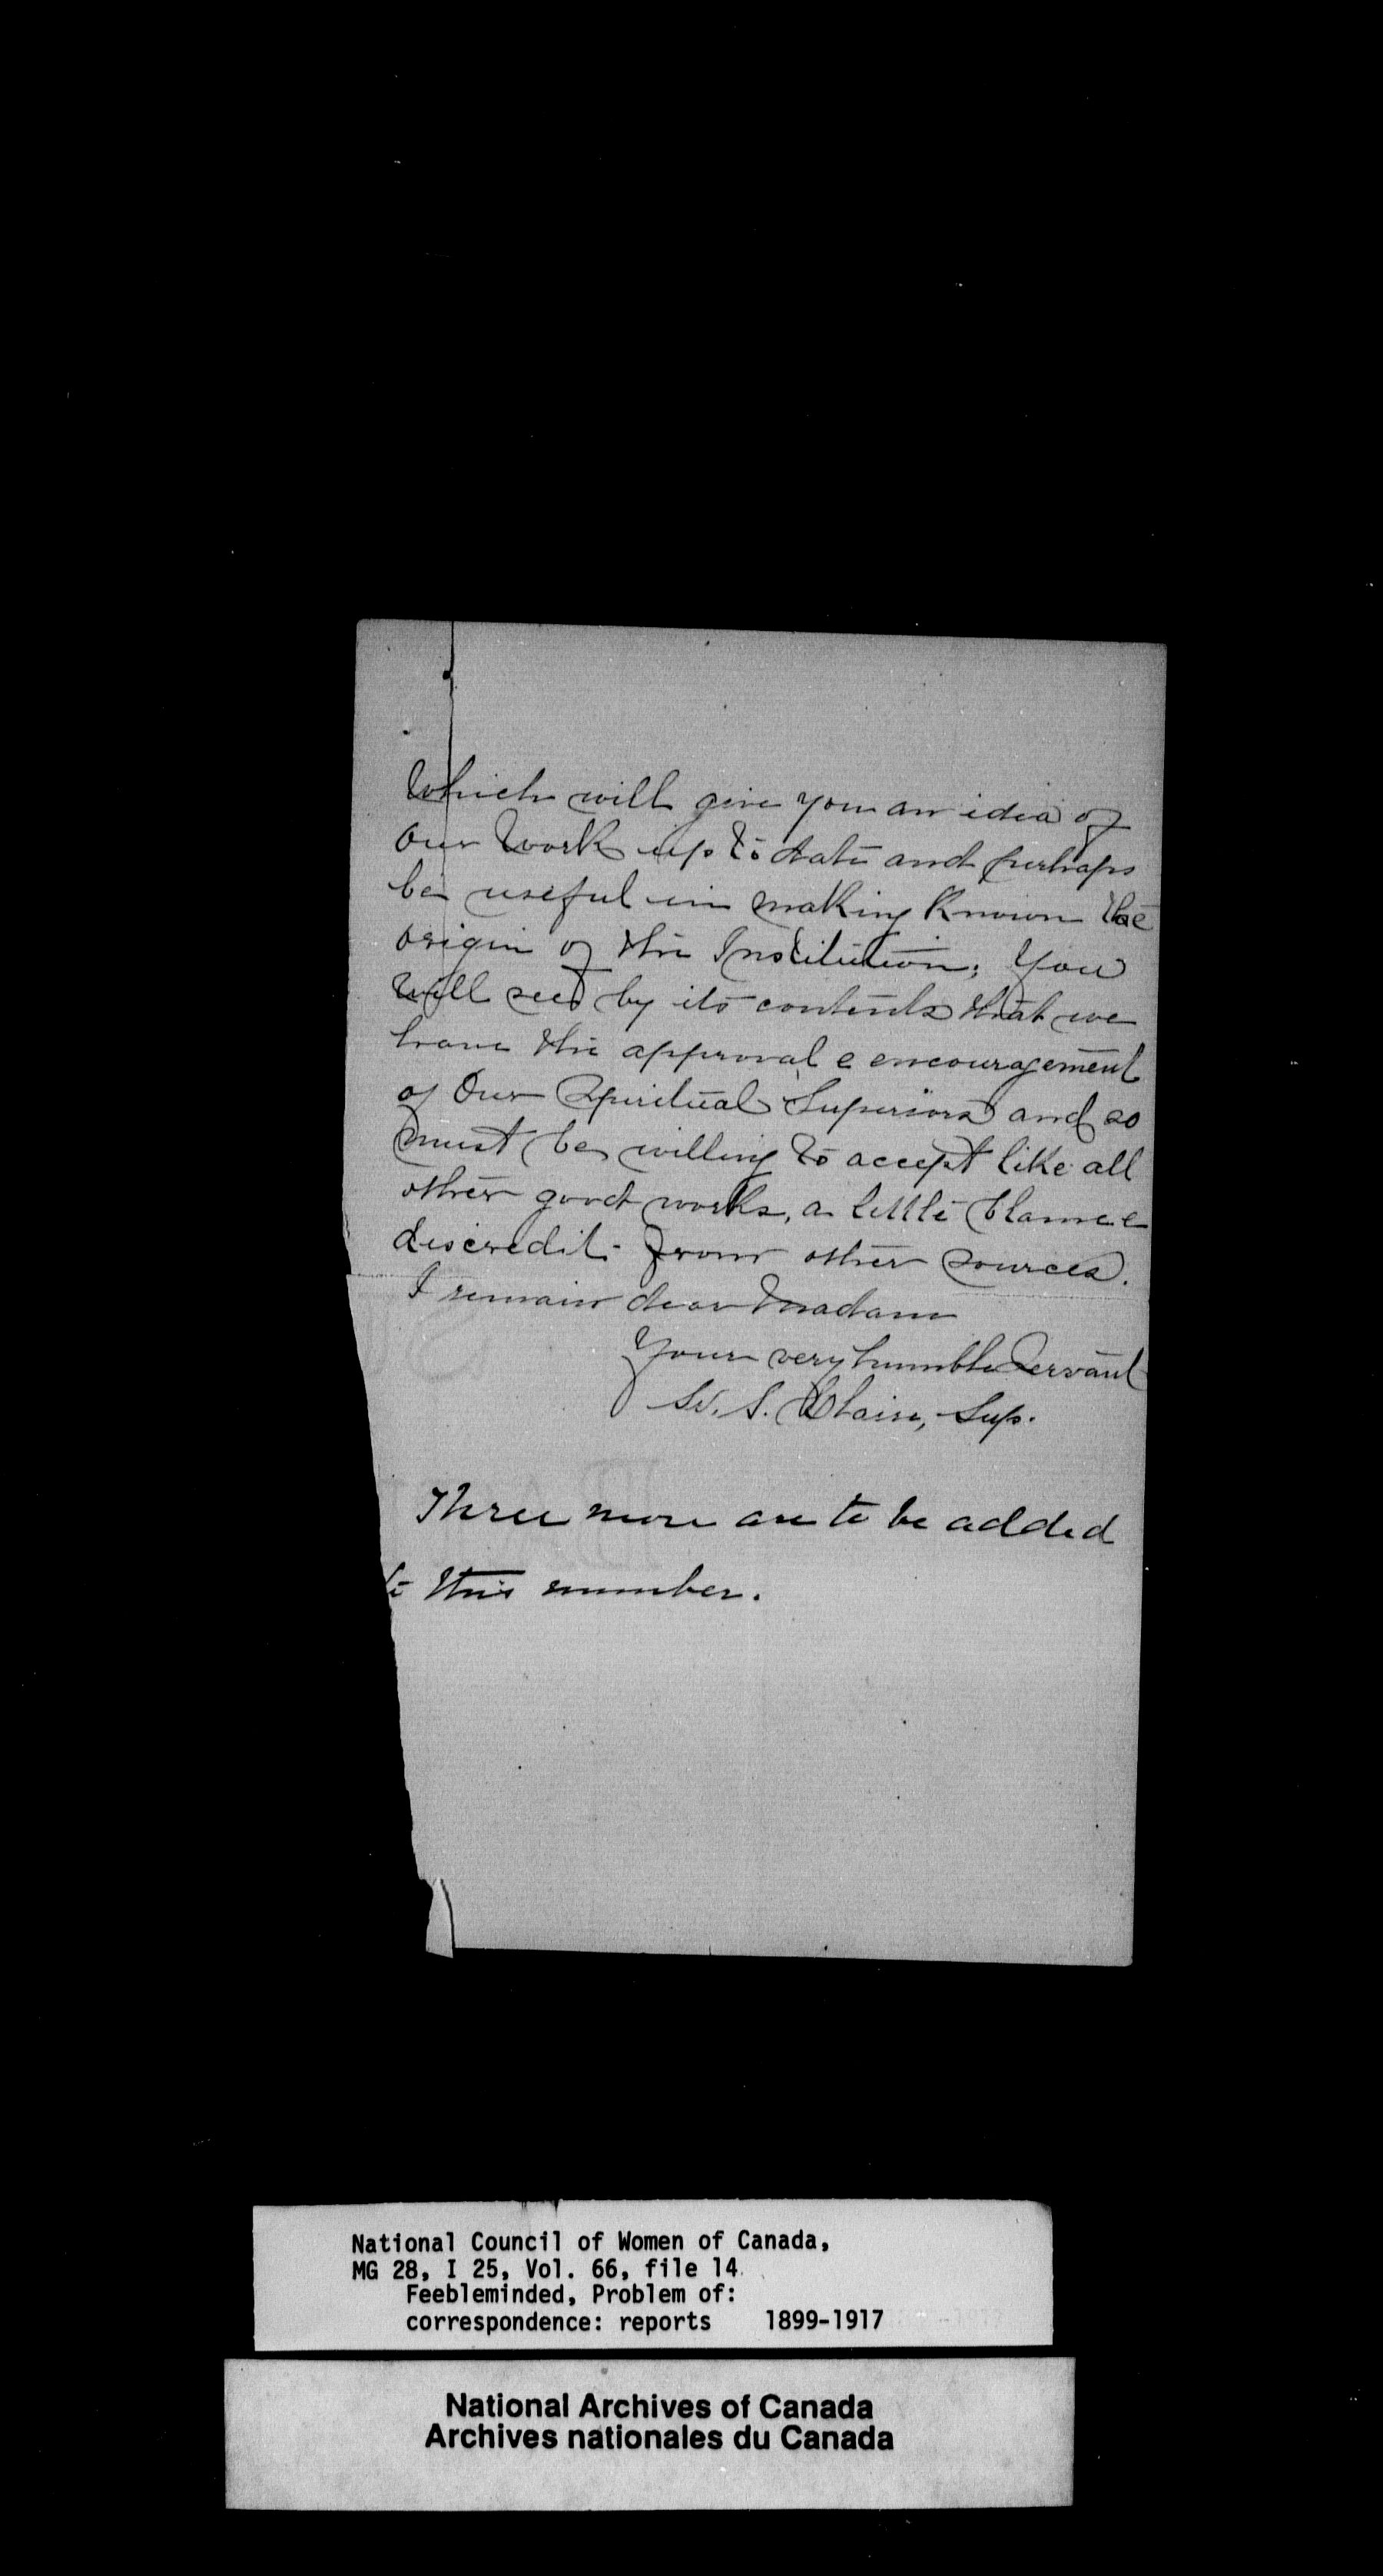 Which will give you an idea of
our work up to date and perhaps
be useful in making known the
origin of the Institution; You
will see by its contents that we
have the approval e encouragement
of Our Spiritual Superiors and so
must be willing to accept like all
other good works, a little blame e
discredit from other sources.
I remain dear Madam
Your very humble Servant
Sr. S. Blaise, Sup.
Three more are to be added
to this number.
National Council of Women of Canada,
MG 28, I 25, Vol. 66, file 14
Feebleminded, Problem of:
correspondence: reports 1899-1917
National Archives of Canada
Archives nationales du Canada